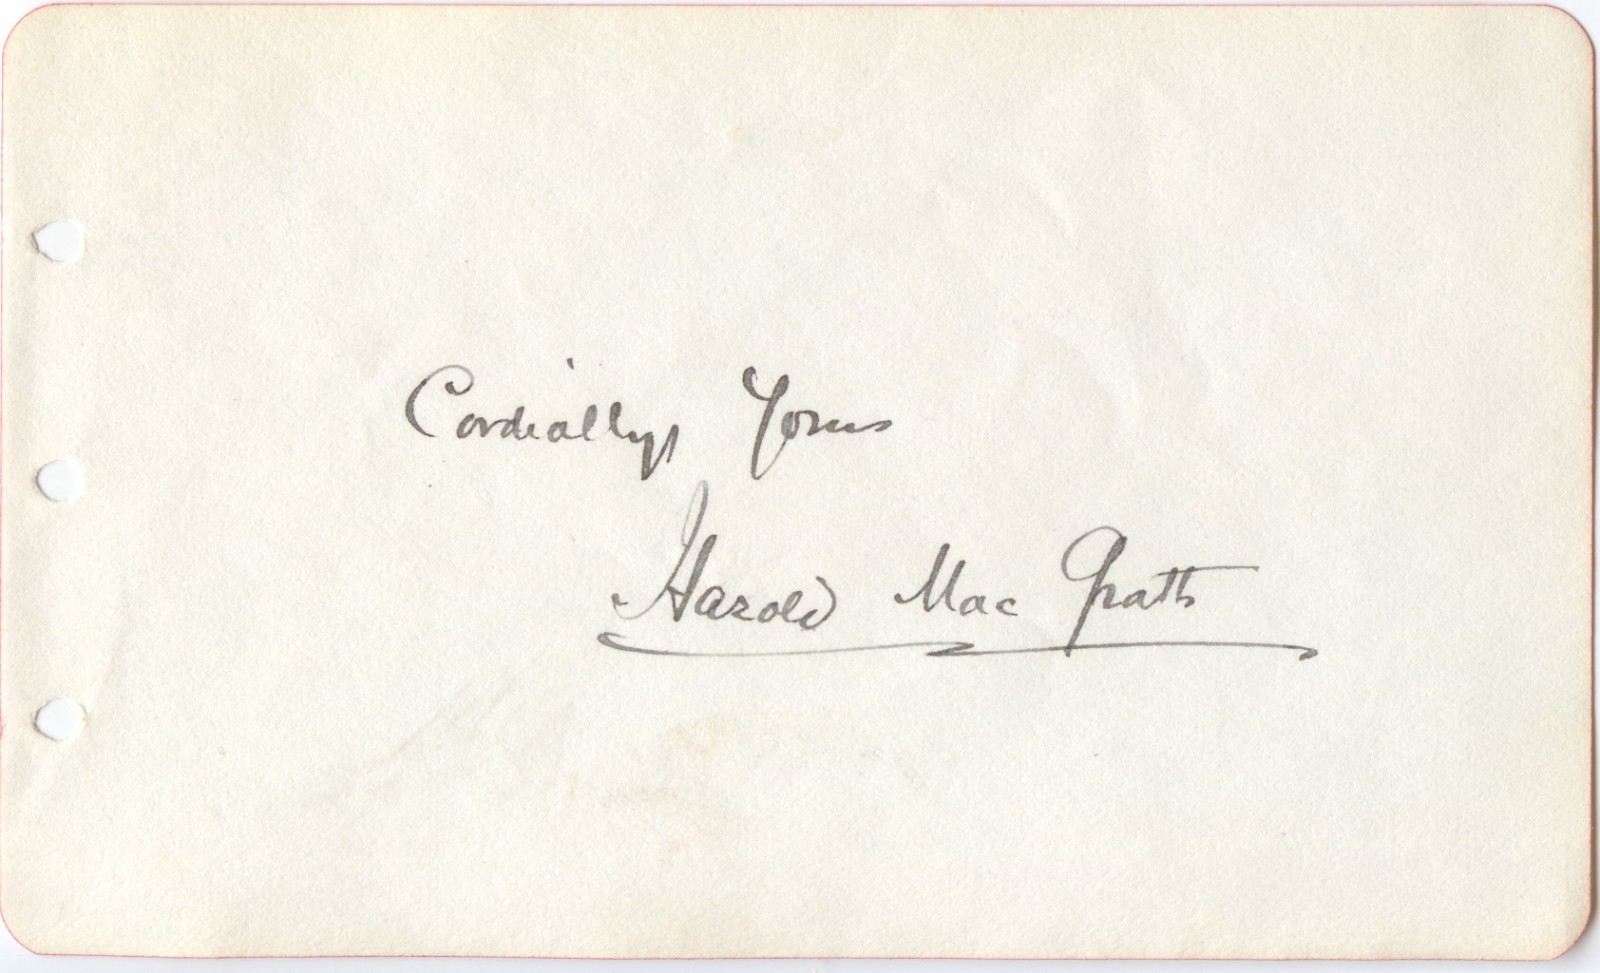 Cordially, Yours
Harold Mac Grath